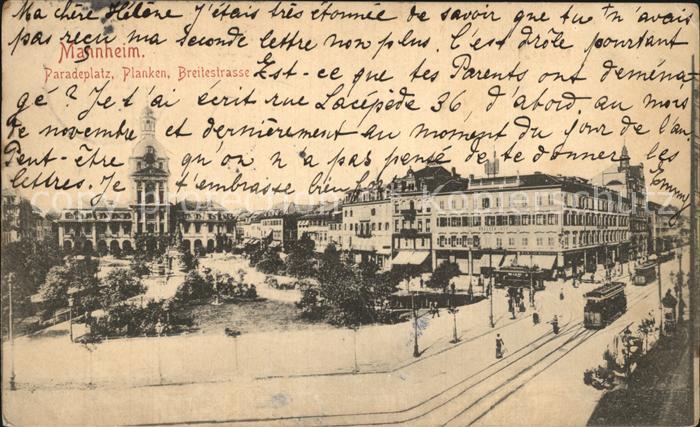 Ma chère Hélène J'étais très étonnée de savoir que tu n'avais
pas reçu ma seconde lettre non plus. C'est drôle pourtant
Mannheim.
Paradeplatz, Planken, Breitestrasse
Est-ce que tes Parents ont déména-
gé? Je t'ai écrit rue Lacépède 36 d'abord au mois
de novembre et dernièrement au moment du jour de l'an.
Peut-être qu'on n'a pas pensé de te donner les
lettres. Je t'embrasse bien fort